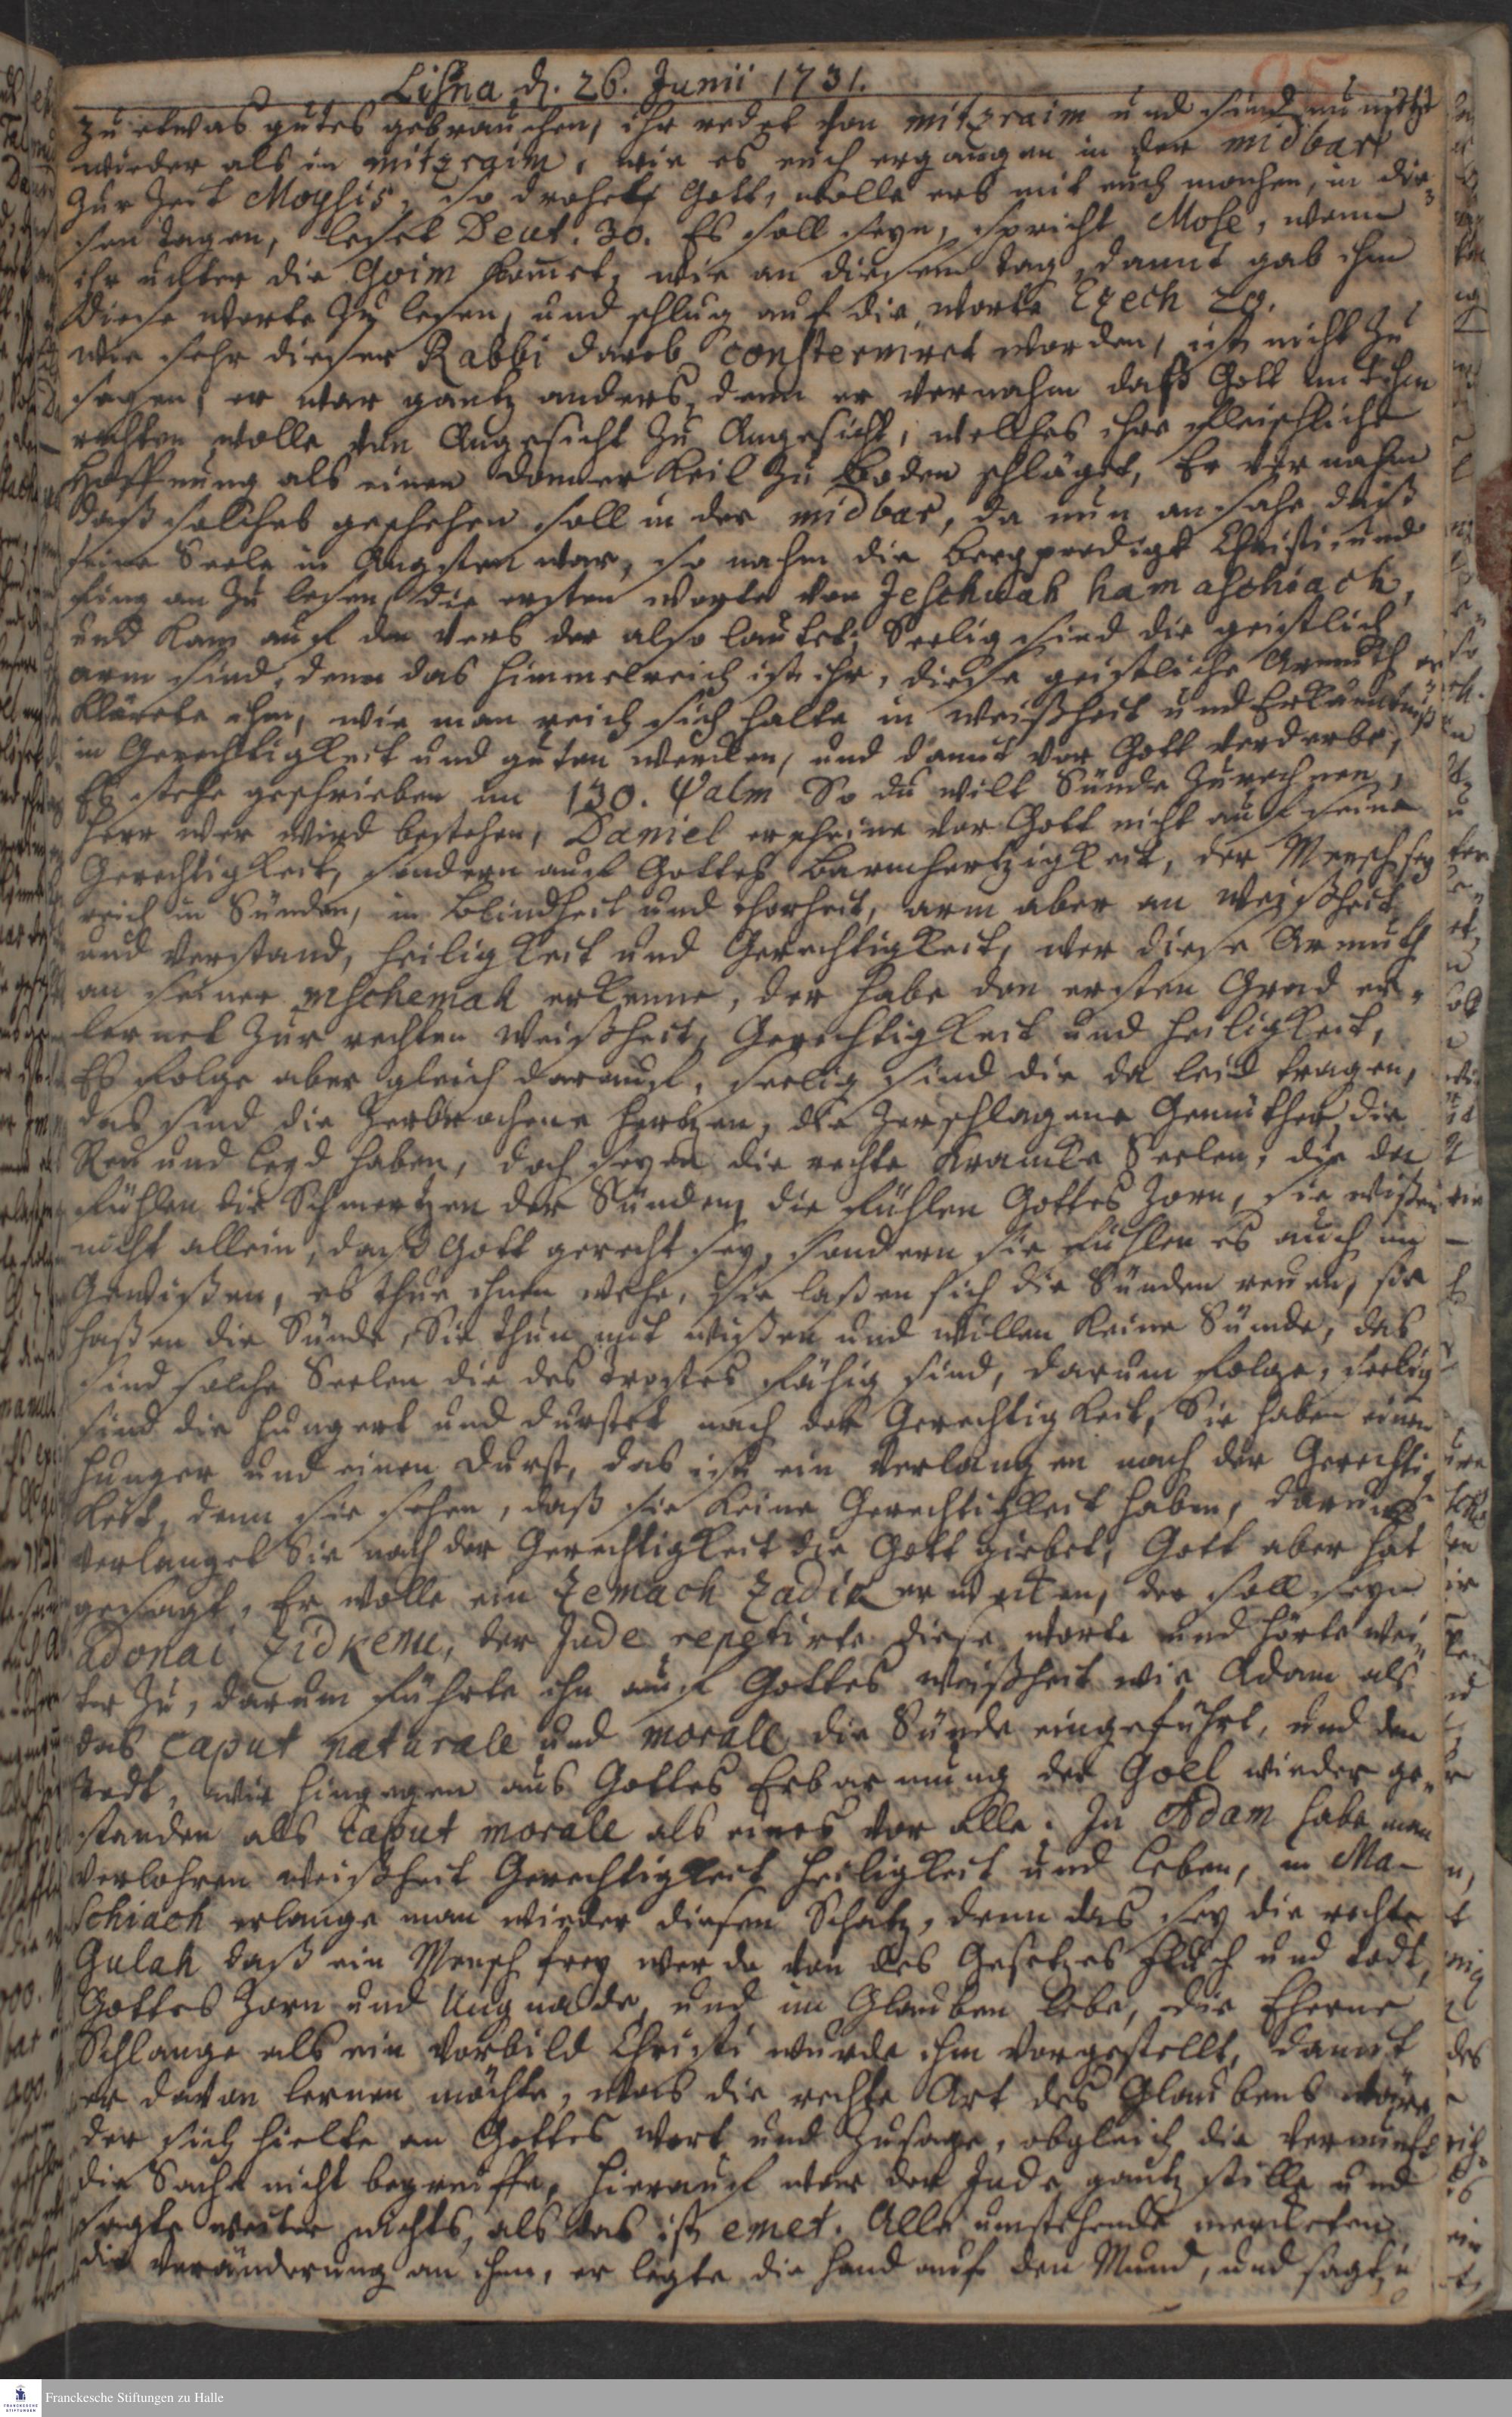 Lißna d. 26. Junii 1731.
zu etwas gutes gebrauchen, ihr redet von mitzraim und sind nu nicht
wieder als in mitzraim, wie es euch ergangen in der midbar
zur Zeit Moysis, so drohete Gott, wolle ers mit euch machen, in die-
sen tagen, leset Deut. 30. Es soll seyn, spricht Mose, wenn
ihr unter die Goim kom̄et, wie an diesem tag, damit gab ihm
diese worte zu lesen, und schlug auf die worte Ezech 20.
wie sehr dieser Rabbi darob consterniret worden, ist nicht zu
sagen, er war gantz anders, denn er vernahm daß Gott mit ihm
rechten wolle von Angesicht zu Angesicht, welches ihre fleischliche
Hoffnung als einen donner Keil zu boden schläget, Er vernahm
daß solches geschehen soll in der midbar, da nun an sahe daß
seine Seele in Ängsten war, so nahm die bergpredigt Christi, und
fing an zu lesen die ersten worte von Jeschuah hamaschiach,
und kam auf den vers der also lautet; Seelig sind die geistlich
arm sind, denn das Himmelreich ist ihr, diese geistliche Armuth er
klärete ihm, wie man reich sich halte in weißheit und Erkäntniß
in Gerechtigkeit und guten wercken, und damit vor Gott verderbe,
Es stehe geschrieben im 130. Psalm So du wilt Sünde zurechnen,
Herr wer wird bestehen, Daniel erscheine vor Gott nicht auf seine
Gerechtigkeit, sondern auf Gottes Barmhertzigkeit, der Mensch sey
reich in Sünden, in blindheit und thorheit, arm aber an Weißheit
und verstand, heiligkeit und Gerechtigkeit, wer diese Armuth
an seiner nschemah erkenne, der habe den ersten Grad er-
lernet zur rechten Weißheit, Gerechtigkeit und heiligkeit,
Es folge aber gleich darauf, seelig sind die da leid tragen,
das sind die zerbrochene hertzen, die zerschlagene Gemüther, die
Reu und leyd haben, doch seyen die rechte Krancke Seelen, die da
fühlen die Schmertzen der Sünden, die fühlen Gottes Zorn, sie wißen
nicht allein, daß Gott gerecht sey, sondern sie fühlen es auch im
Gewißen, es thue ihnen wehe, sie laßen sich die Sünden reuen, sie
haßen die Sünde, Sie thun mit wißen und willen keine Sünde, das
sind solche Seelen die des trostes fähig sind, darum folge, seelig
sind die hungert und durstet nach der Gerechtigkeit, Sie haben einen
hunger und einen durst, das ist ein verlangen nach der Gerechtig-
keit, denn sie sehen, daß sie keine Gerechtigkeit haben, darum
verlanget Sie nach der Gerechtigkeit die Gott giebet, Gott aber hat
gesagt, Er wolle ein Zemach Zadik erwecken, der soll seyn
Adonai Zidkenu, der Jude repetirte diese worte und hörte wei-
ter zu, darum führte ihn auf Gottes weißheit wie Adam als
das caput naturale und morale die Sünde eingeführt, und den
todt, wie hingegen aus Gottes Erbarmung der Goel wieder ge-
standen als caput morale als eines vor alle. In Adam habe man
verlohren weißheit Gerechtigkeit heiligkeit und leben, in Ma-
schiach erlange man wieder diesen Schatz, denn das sey die rechte
Gulah daß ein Mensch frey werde von des Gesetzes fluch und todt,
Gottes Zorn und Ungnade, und im Glauben lebe, die Eherne
Schlange als ein Vorbild Christi wurde ihm vorgestellt, damit
er davon lernen möchte, was die rechte Art des Glaubens wäre,
der sich hielte an Gottes wort und Zusage, obgleich die vernunft
die Sache nicht begreiffe, hierauf war der Jude gantz stille und
sagte weiter nichts, als das ist emet. Alle umstehende merckten
die veränderung an ihm, er legte die hand auf den Mund, und sagte
Franckesche Stiftungen zu Halle